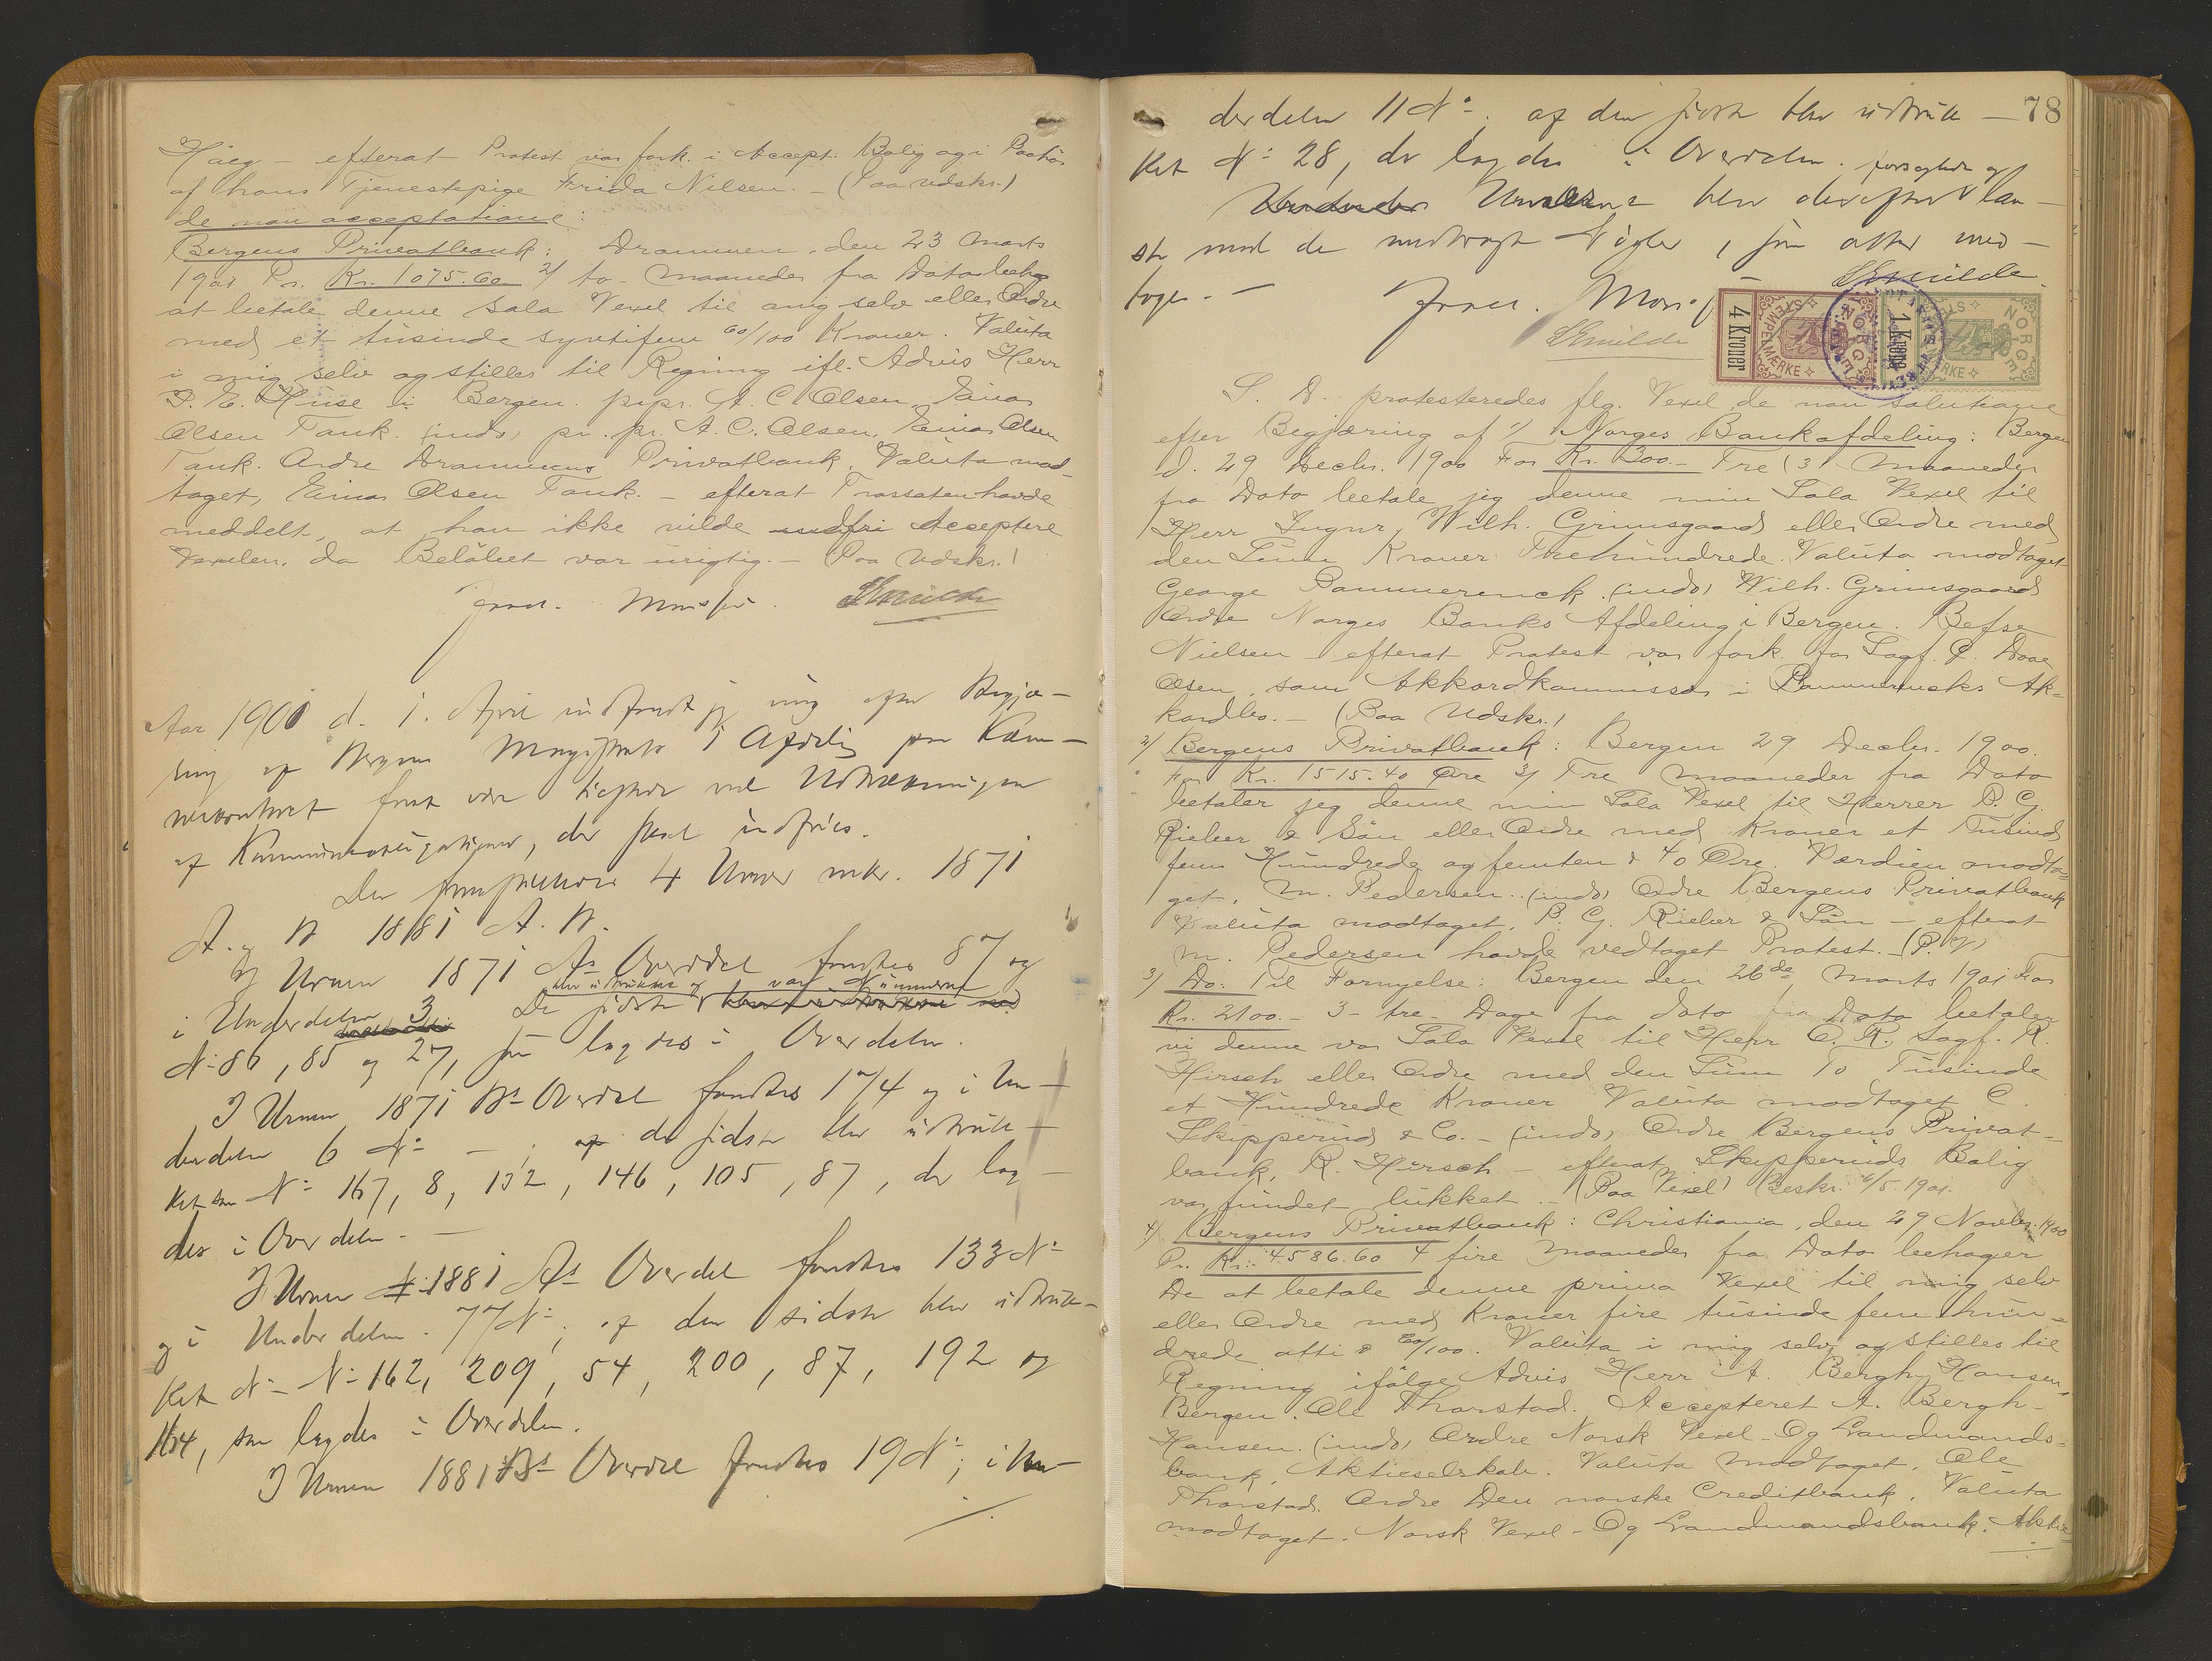 Häeg – efterat Protest var fork. i Accept. Bolig og i Paahör
af hans Tjenestepige Frida Nilsen. – (Paa Udskr.)
de non acceptatione:
Bergens Privatbank: Drammen, den 23 Marts
1901 Pr. Kr. 1075.60 2/ to – Maaneder fra Dato behag
at betale denne Sola Vexel til mig selv eller Ordre
med et tusinde syvtifem 60/100 Kroner. Valuta
i mig selv og stilles til Regning ifl. Advis Herr
P. E. Huse i Bergen. pr.pr. A. C. Olsen, Einar
Olsen Tank. (indo) pr. pr. A. C. Olsen, Einar Olsen
Tank. Ordre Drammens Privatbank. Valuta mod-
taget, Einar Olsen Tank. – efterat Trassaten havde
meddelt, at han ikke vilde indfri Acceptere
Vexelen, da Belöbet var urigtig. – (Paa Udskr.)
Aar 1901 d. 1. April indfandt jeg mig efter Begjæ-
ring af Bergens Magistrats 1 Afdeling paa Kæm-
nerkontoret for at være tilstede ved Udtrækningen
af Kommuneobligationer, der skal indfries.
Der 4 Urner mkr. 1871
A. og B 1881 A. B.
I Urnen 1871 As Overdel fandtes 87 og
blev udtrukket og var Nummerne
i Underdelen 3 De sidste
No 86, 85 og 27, som lagdes i Overdelen.
I Urnen 1871 Bs Overdel fandtes 174 og i Un-
derdelen 6 No – ; af de sidste blev udtruk-
ket No 167, 8, 132, 146, 105, 87, der lag-
des i Overdelen. –
I Urnen 1881 As Overdel fandtes 133 No
og i Underdelen 77 No; af den sidste blev udtruk-
ket No 162, 209, 54, 200, 87, 192 og
164, som lagdes i Overdelen.
I Urnen 1881 Bs Overdel fandtes 19 No; i Un-
./.
78
derdelen 11 No. af den sidste blev udtruk –
ket No 28, der lagdes i Overdelen. forseglede og
Urnerne blev derefter laa-
ste med de medbragte Nögler, som atter med-
toges. –
NORGE
STEMPELMÆRKE
4 Kroner
NORGE
1 Krone
S. D. protesteredes flg. Vexel de non solutione
efter Begjæring af 1/ Norges Bankafdeling: Bergen
d. 29 Decbr. 1900 For Kr. 300.– Tre (3) Maaneder
fra Dato betale jeg denne min Sola Vexel til
Herr Ingnr. Wilh. Grimsgaard eller Ordre med
den Sum Kroner Trehundrede. Valuta modtaget
George Pommerenck. (indo) Wilh. Grimsgaard
Ordre Norges Banks Afdeling i Bergen.
Nielsen – efterat Protest var fork. for Sagf. C. Dove
Olsen, som Akkordkommissær i Pommerencks Ak-
kordbo. – (Paa Udskr.)
2/ Bergens Privatbank: Bergen 29 Decbr. 1900.
For Kr. 1515.40 Øre 3/ Tre Maaneder fra Dato
betaler jeg denne min Sola Vexel til Herrer P. G.
Rieber & Sön eller Ordre med Kroner et Tusind
fem Hundrede og femten & 40 Øre. Værdien modta-
get, M. Pedersen. (indo) Ordre Bergens Privatbank
Valuta modtaget, P. G. Rieber & Sön – efterat
M. Pedersen havde vedtaget Protest. (P. V)
3/ Do: Til Fornyelse: Bergen den 26de Marts 1901 For
Kr. 2100.– 3– tre– Dage fra dato fra Dato betaler
vi denne vor Sola Vexel til Herr O. R. Sagf. R.
Hirsch eller Ordre med den Sum To Tusinde
et Hundrede Kroner Valuta modtaget C.
Skipperud & Co. – (indo) Ordre Bergens Privat-
bank, R. Hirsch – efterat Skipperuds Bolig
var fundet lukket. – (Paa Vexel) Beskr. 6/5 1901.
4/ Bergens Privatbank: Christiania, den 29 Novbr. 1900
Pr. Kr.: 4586.60 4 fire Maaneder fra Dato behager
De at betale denne prima Vexel til mig selv
eller Ordre med Kroner fire tusinde fem hun-
drede otti & 60/100. Valuta i mig selv og stilles til
Regning ifölge Advis Herr A. Bergh Hansen,
Bergen. Ole Thorstad. Accepteret A. Bergh-
Hansen. (indo) Ordre Norsk Vexel- Og Landmands-
bank, Aktieselskab. Valuta Modtaget. Ole
Thorstad. Ordre Den norske Creditbank. Valuta
modtaget. Norsk Vexel- Og Landmandsbank, Aktie-
./.